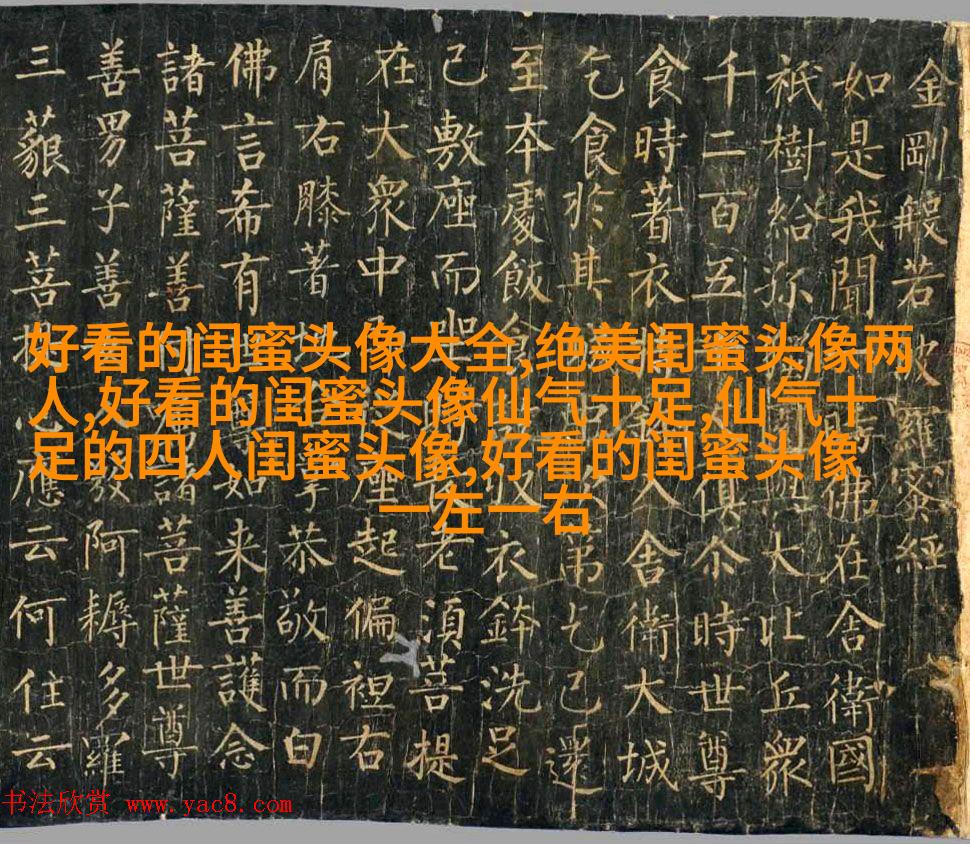 金剛般若波羅蜜經
如是我聞時佛在舍衛國
祇樹給孫園與大比丘眾
千二百五俱尒時世尊
食時著衣入舍衛大城
乞食於其苐乞已還
至本處飯食收衣鉢洗足
已敷座而坐老須菩提
在大眾中座起偏袒右
肩右膝著地掌恭敬而白
佛言希有世如来善護念
諸菩薩善付諸菩薩世尊
善男子善發阿耨多羅
三藐三菩提心應云何住云
好看的闺蜜头像大全,绝美闺蜜头像两
人,好看的闺蜜头像仙气十足,仙气十
足的四人闺蜜头像,好看的闺蜜头像
一左一右
书法欣赏 www.yac8.com